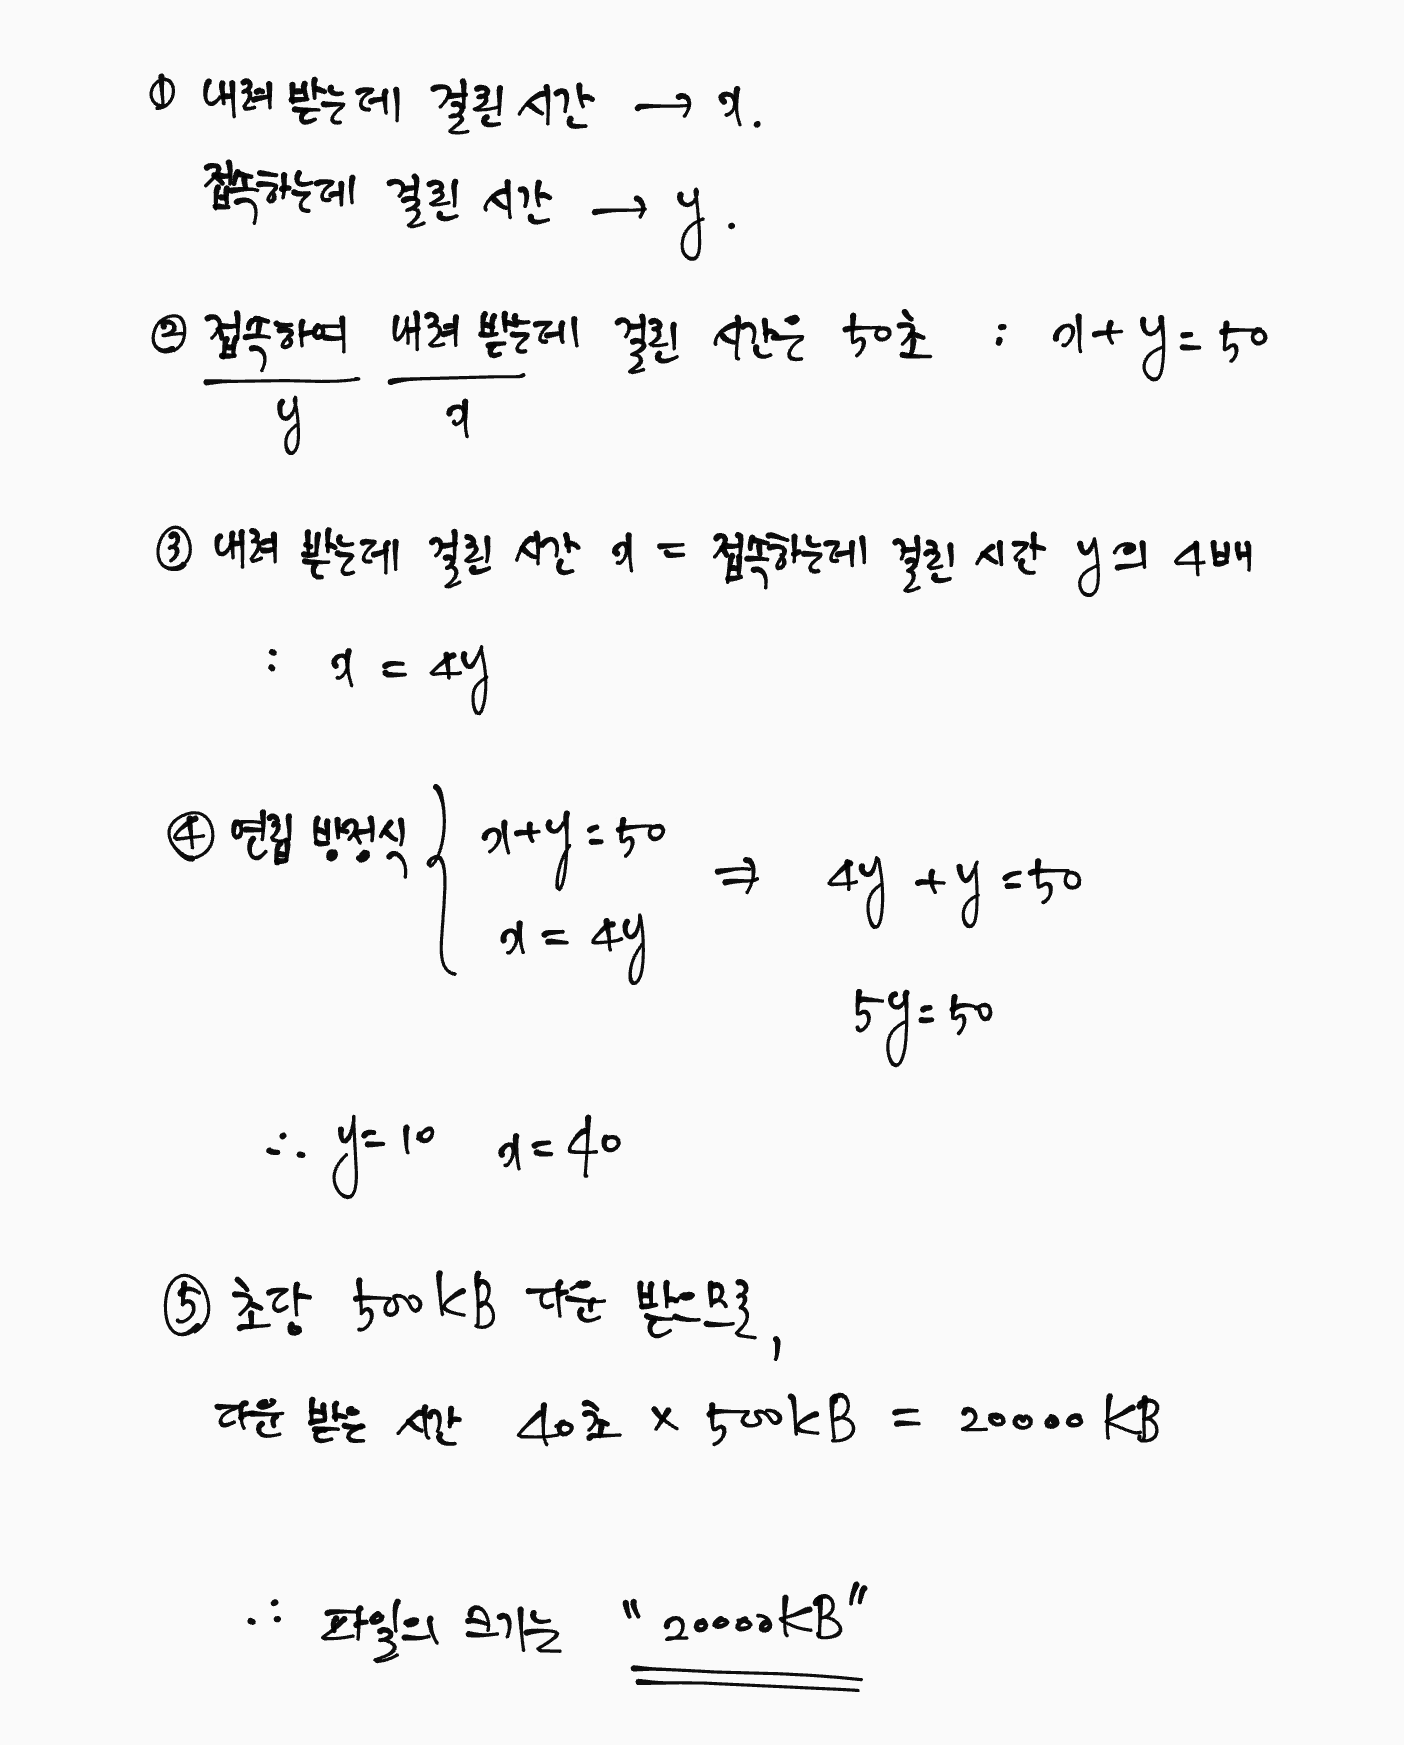 ① 내려 받는데 걸린 시간 → x.
접속하는데 걸린 시간 → y.
② 접속하여 내려 받는데 걸린 시간은 50초 : x+y=50
y x
③ 내려 받는데 걸린 시간 x = 접속하는데 걸린 시간 y의 4배
: x = 4y
④ 연립 방정식 { x+y=50 ⇒ 4y+y=50
x=4y
5y=50
∴ y=10 x=40
⑤ 초당 500KB 다운 받으므로,
다운 받은 시간 40초 × 500KB = 20000KB
∴ 파일의 크기는 "20000KB"